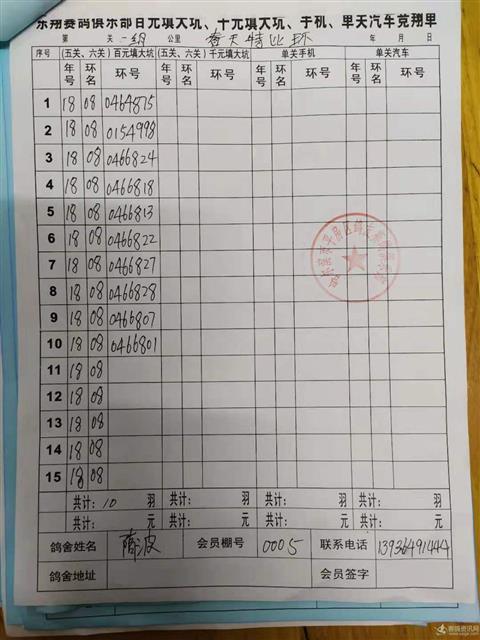 东翔赛鸽俱乐部百元填大坑、千元填大坑、手机、单天汽车竞翔单
第 关 一纳 公里 春天特比环 年 月 日
序号 (五关、六关)百元填大坑 (五关、六关)千元填大坑 单关手机 单关汽车
年号 环名 环号 年号 环名 环号 年号 环名 环号 年号 环名 环号
1 18 08 0464875
2 18 08 0154998
3 18 08 0466824
4 18 08 0466818
5 18 08 0466813
6 18 08 0466822
7 18 08 0466827
8 18 08 0466828
9 18 08 0466807
10 18 08 0466801
11 18 08
12 18 08
13 18 08
14 18 08
15 18 08
共计: 10 羽 共计: 羽 共计: 羽 共计: 羽
共计: 元 共计: 元 共计: 元 共计: 元
鸽舍姓名 波 会员棚号 0005 联系电话 13936491444
鸽舍地址 会员签字
赛鸽资讯网